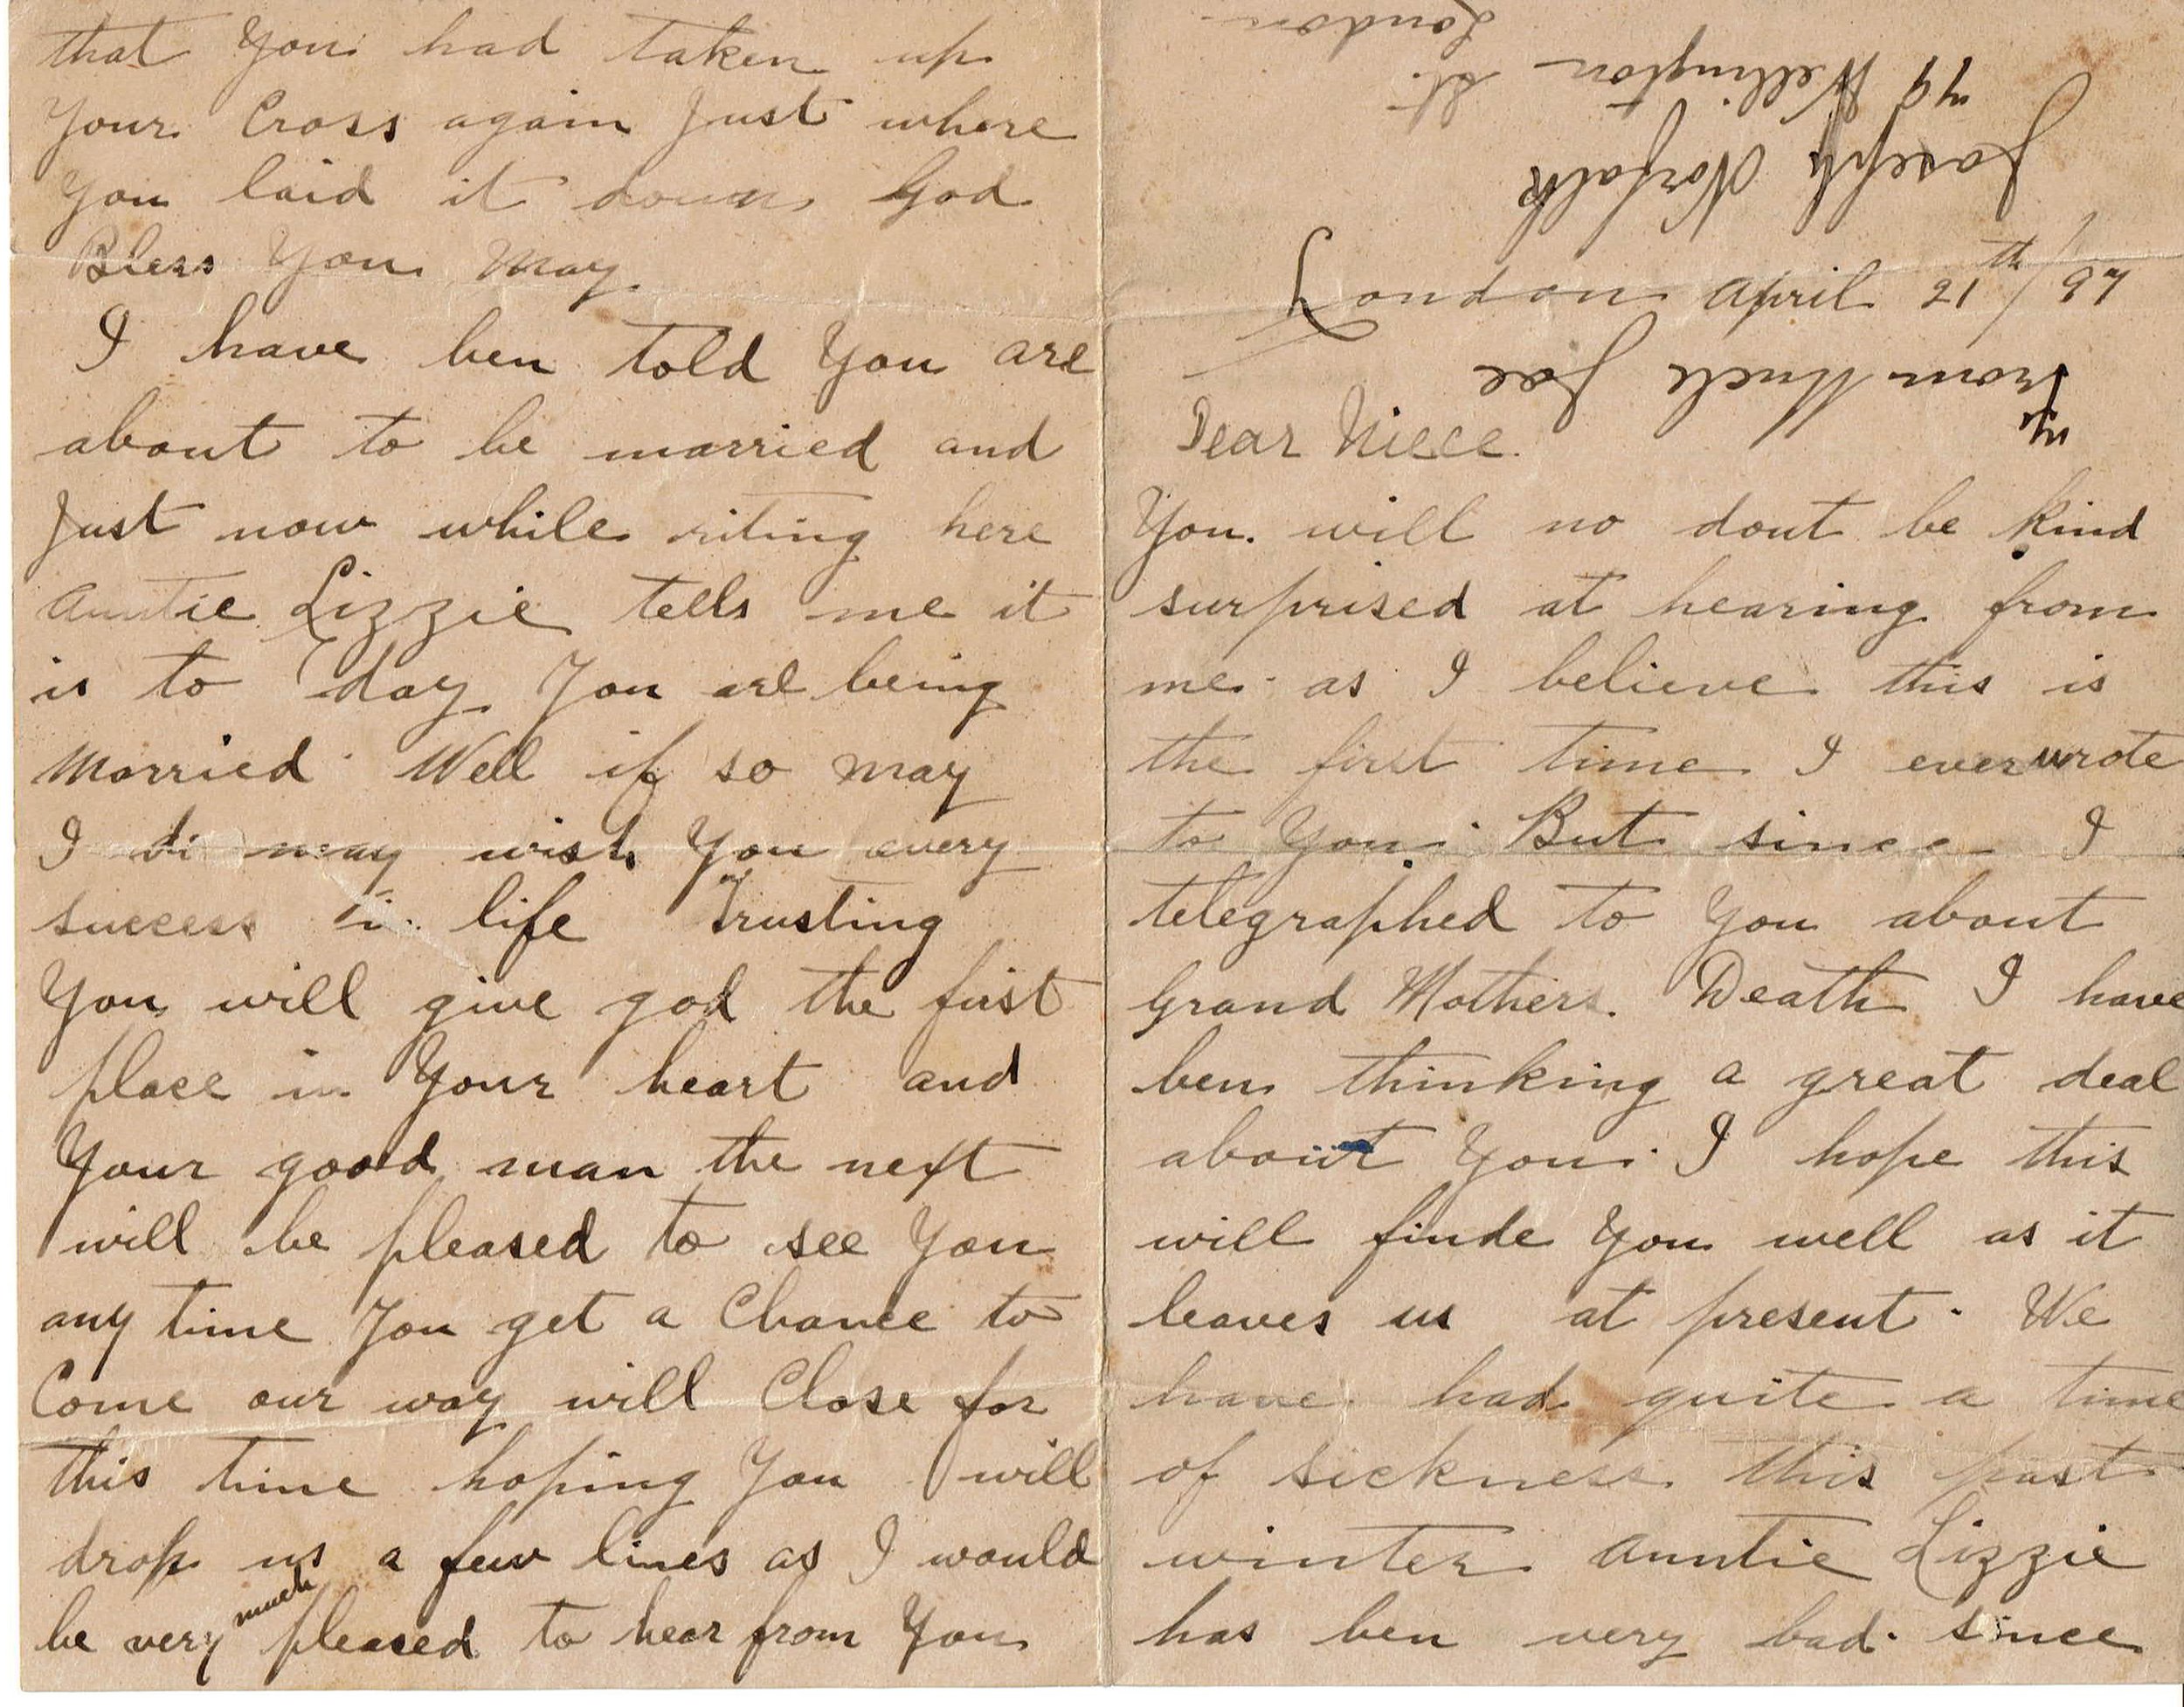 London April 21th/97
Dear Niece.
You. will no dout be kind
surprised at hearing from
me as I believe this is
the first time I ever wrote
to You. But since I
telegraphed to You about
Grand Mothers. Death I have
ben thinking a great deal
about You. I hope this
will finde You well as it
leaves us at present. We
have had quite a time
of sickness this past
winter Auntie Lizzie
has ben very bad. since
that You had taken up
Your Cross again Just where
You laid it down God
Bless You May
I have ben told You are
about to be married and
Just now while riting here
Auntie Lizzie tells me it
is to day You are being
Married. Well if so may
I may wish You every
success in life Trusting
You will give god the first
place in Your heart and
Your good man the next
will be pleased to see You
any time You get a Chance to
Come our way will Close for
this time hoping You will
drop us a few lines as I would
be very much pleased to hear from You
From Uncle Joe
Joseph Norfolk
79 Wellington St.
London